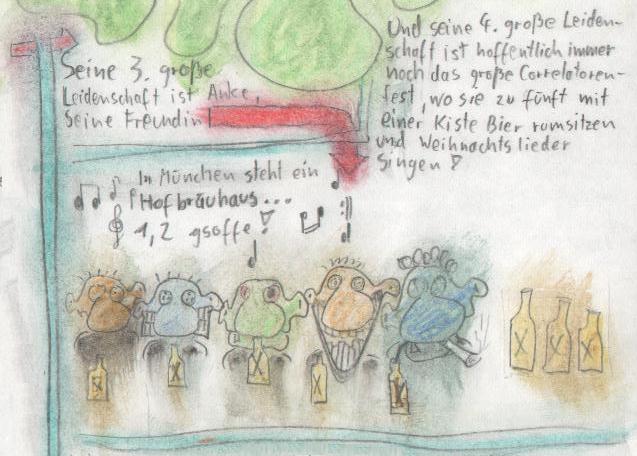 Seine 3. große
Leidenschaft ist Anke,
Seine Freundin!
Und seine 4. große Leiden-
schaft ist hoffentlich immer
noch das große Correlatoren-
fest, wo sie zu fünft mit
einer Kiste Bier rumsitzen
und Weihnachtslieder
singen!
In München steht ein
Hofbräuhaus...
1, 2 gsoffe!
X
X
X
X
X
X
X
X